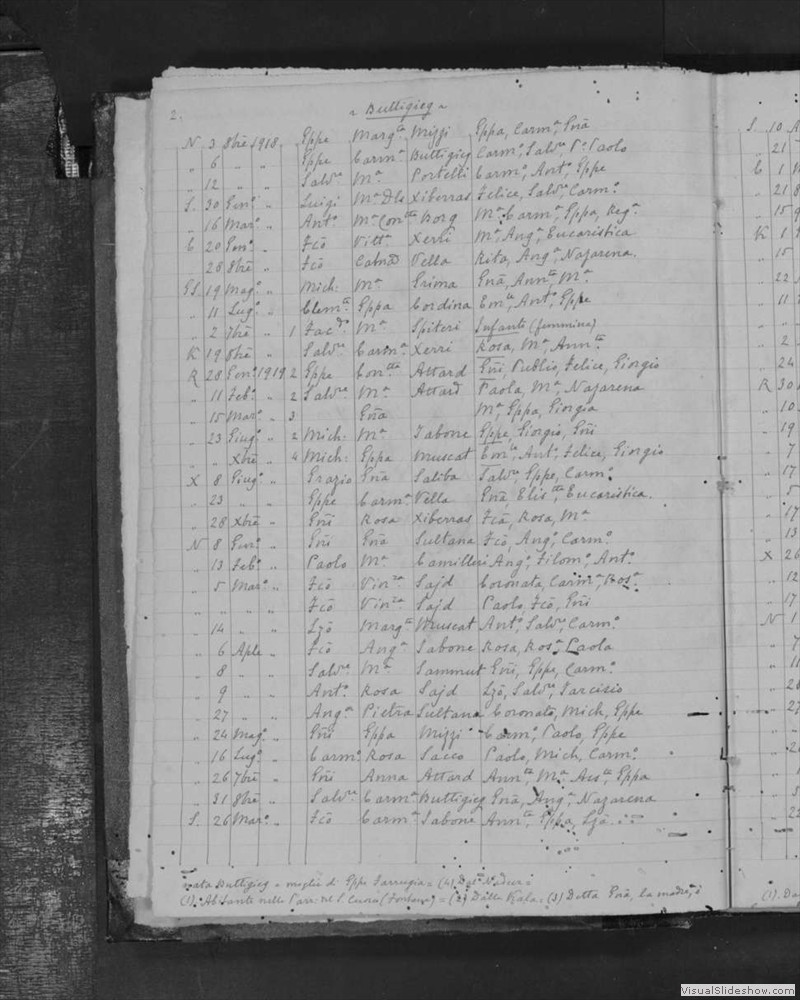 2.
" Buttigieg "
N 3 8bre 1918 Gppe Marg.ta Mizzi Gppa, Carm.a, Gnā
" 6 " " Gppe Carm.a Buttigieg Carm.a, Salv.re P.o Paolo
" 12 " " Salv.re M.a Portelli Carm.o, Ant.o, Gppe
S. 30 Gen.o " Luigi M.a Dls Xiberras Felice, Salv.re, Carm.o
" 16 Mar.o " Ant.o M.a Con.tta Borg M.a Carm.a, Gppa, Reg.a
C 20 Gen.o " Fcō Vitt.a Xerri M.a, Ang.a, Eucaristica
" 28 8bre " Fcō Catnā Vella Rita, Ang.a, Nazarena.
GS. 19 Mag.o " Mich: M.a Grima Gnā, Ann.ta, M.a
" 11 Lug.o " Clem.te Gppa Cordina Em.le, Ant.o, Gppe
" 2 7bre " 1 M.a Spiteri Infante (femmina)
K 19 8bre " Salv.re Carm.a Xerri Rosa, M.a, Ann.ta
R 28 Gen.o 1919 2 Gppe Con.tta Attard Gñi Publio, Felice, Giorgio
" 11 Feb.o " 2 Salv.re M.a Attard Paola, M.a, Nazarena
" 15 Mar.o " 3 Gnā M.a, Gppa, Giorgia
" 23 Giug.o " 2 Mich: M.a Tabone Gppe, Giorgio, Gñi
" " Xbre " 4 Mich: Gppa Muscat Em.le, Ant.o, Felice, Giorgio
X 8 Giug.o " Grazio Gnā Saliba Salv.re, Gppe, Carm.o
" 23 " " Gppe Carm.a Vella Gnā, Elis.tta, Eucaristica.
" 28 Xbre " Gñi Rosa Xiberras Fcā, Rosa, M.a
N 8 Gen.o " Gñi Gnā Sultana Fcō, Ang.o, Carm.o
" 13 Feb.o " Paolo M.a Camilleri Ang.o, Filom.o, Ant.o
" 5 Mar.o " Fcō Vin.za Sajd Coronata, Carm.a, Ros.a
" " " " Fcō Vin.za Sajd Paolo, Fcō, Gñi
" 14 " " Lzō Marg.ta Muscat Ant.o, Salv.re, Carm.o
" 6 Aple " Fcō Ang.a Tabone Rosa, Ros.a, Paola
" 8 " " Salv.re M.a Sammut Gñi, Gppe, Carm.o
" 9 " " Ant.o Rosa Sajd Lzō, Salv.re, Tarcisio
" 27 " " Ang.o Pietra Sultana Coronato, Mich, Gppe
" 24 Mag.o " Gñi Gppa Mizzi Carm.o Paolo, Gppe
" 16 Lug.o " Carm.o Rosa Sacco Paolo, Mich, Carm.o
" 26 7bre " Gñi Anna Attard Ann.ta, M.a Ass.ta, Gppa
" 31 8bre " Salv.re Carm.a Buttigieg Gnā, Ang.a, Nazarena
S. 26 Mar.o " Fcō Carm.a Tabone Ann.ta, Gppa, Lzā
nata Buttigieg = moglie di Gppe Farrugia = (4) Nadur =
(1) Abitanti nella Parr: del S. Cuore (Fontana) = (2) Dalla Kala = (3) Detta Gnā, la madre, è
S. 10
" 21
C 1
" 21
" 15
K 1
" 15
" 22
" 11
" 2
" 24
R 30
" 10
" 19
" 7
" 17
" 5
" 17
" 13
X 26
" 12
" 17
N 1
" 7
" 11
" 20
" 27
(1) Da
VisualSlideshow.com